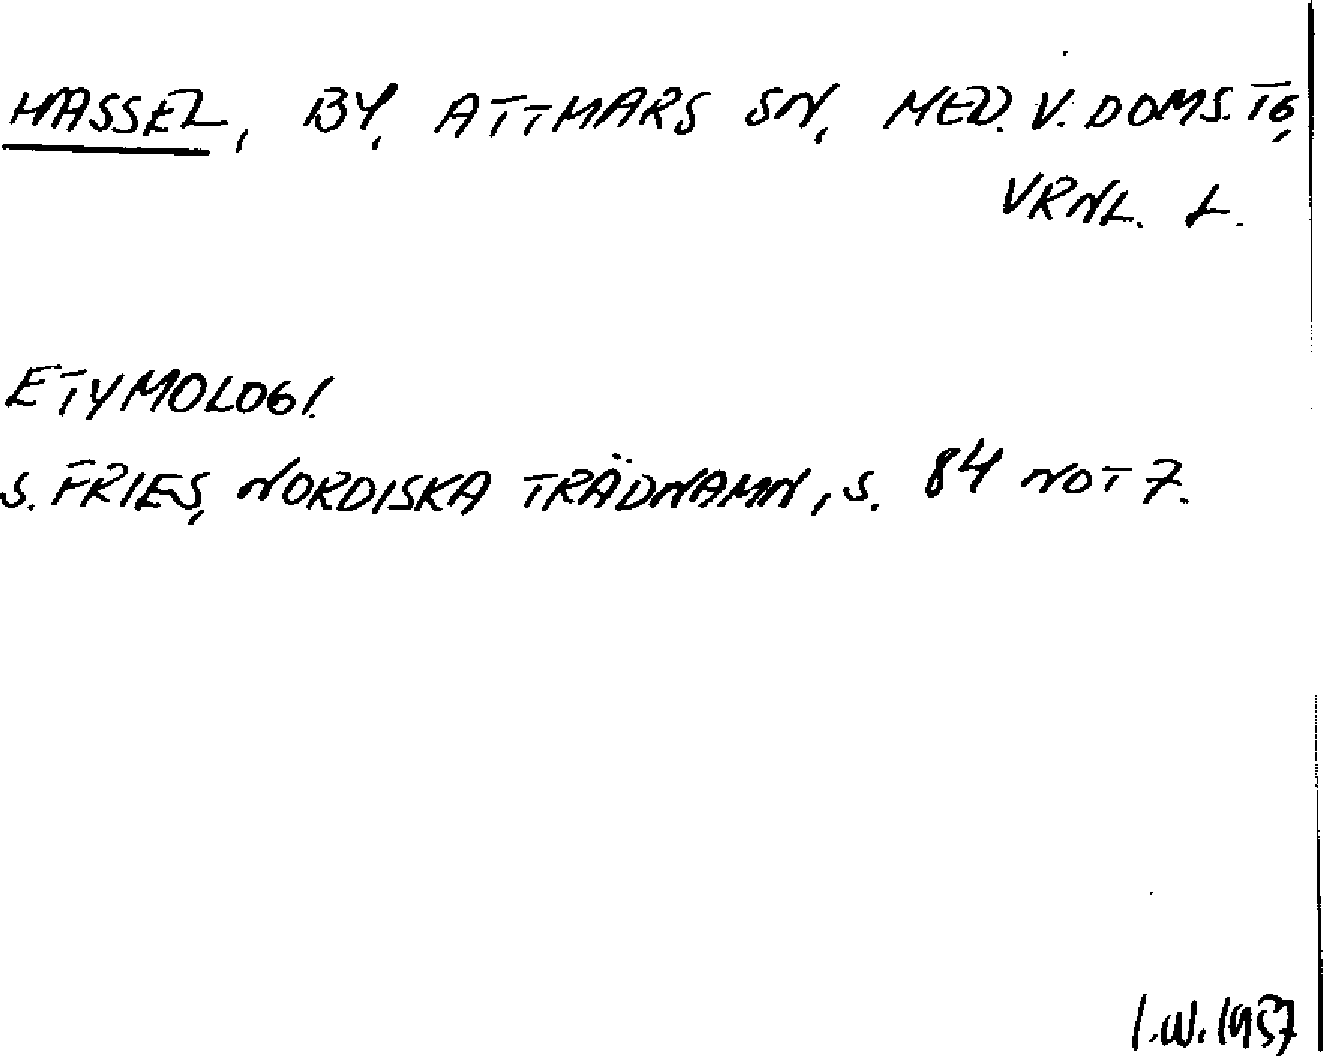 HASSEL, BY, ATTMARS SN, MED. V. DOMS. TG,
VRNL. L.
ETYMOLOGI.
S. FRIES, NORDISKA TRÄDNAMN, S. 84 NOT 7.
I.W. 1957